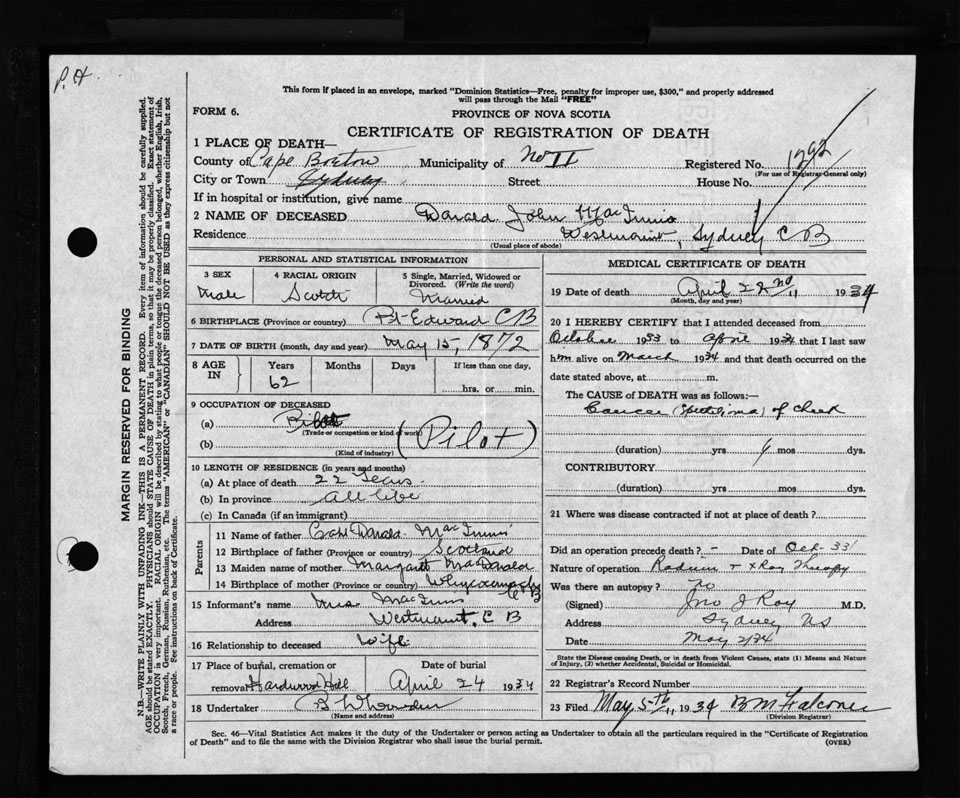 P.H
This form if placed in an envelope, marked "Dominion Statistics—Free, penalty for improper use, $300," and properly addressed
will pass through the Mail "FREE"
FORM 6.
PROVINCE OF NOVA SCOTIA
CERTIFICATE OF REGISTRATION OF DEATH
1 PLACE OF DEATH—
County of Cape Breton Municipality of No II Registered No. 1292
(For use of Registrar General only)
City or Town Sydney Street House No.
If in hospital or institution, give name
2 NAME OF DECEASED Donald John MacInnis
Residence Westmount, Sydney C B
(Usual place of abode)
PERSONAL AND STATISTICAL INFORMATION
3 SEX 4 RACIAL ORIGIN 5 Single, Married, Widowed or
Divorced. (Write the word)
Male Scotch Married
6 BIRTHPLACE (Province or country) Pt-Edward CB
7 DATE OF BIRTH (month, day and year) May 15, 1872
8 AGE IN Years Months Days If less than one day,
62 hrs. or min.
9 OCCUPATION OF DECEASED
(a)
(Trade or occupation or kind of work)
(b) (Pilot)
(Kind of industry)
10 LENGTH OF RESIDENCE (in years and months)
(a) At place of death 22 Years.
(b) In province all life
(c) In Canada (if an immigrant)
Parents
11 Name of father Capt Donald MacInnis
12 Birthplace of father (Province or country) Scotland
13 Maiden name of mother Margaret MacDonald
14 Birthplace of mother (Province or country) Whycocomagh C B
15 Informant's name Mrs MacInnis
Address Westmount, C B
16 Relationship to deceased Wife
17 Place of burial, cremation or Date of burial
removal Hardwood Hill April 24 1934
18 Undertaker
(Name and address)
MEDICAL CERTIFICATE OF DEATH
19 Date of death April 22nd 1934
(Month, day and year)
20 I HEREBY CERTIFY that I attended deceased from
October 1933 to April 1934 that I last saw
him alive on March 1934 and that death occurred on the
date stated above, at m.
The CAUSE of DEATH was as follows:—
Cancer (Epithelioma) of cheek
(duration) yrs mos dys.
CONTRIBUTORY
(duration) yrs mos dys.
21 Where was disease contracted if not at place of death ?
Did an operation precede death ? - Date of Oct-33
Nature of operation Radium + XRay Therapy
Was there an autopsy ? No
(Signed) Jno J Roy M.D.
Address Sydney NS
Date May 2/34
State the Disease causing Death, or in death from Violent Causes, state (1) Means and Nature
of Injury, (2) whether Accidental, Suicidal or Homicidal.
22 Registrar's Record Number
23 Filed May 5th 1934 B M Falconer
(Division Registrar)
Sec. 46—Vital Statistics Act makes it the duty of the Undertaker or person acting as Undertaker to obtain all the particulars required in the "Certificate of Registration
of Death" and to file the same with the Division Registrar who shall issue the burial permit. (OVER)
MARGIN RESERVED FOR BINDING
N.B.—WRITE PLAINLY WITH UNFADING INK—THIS IS A PERMANENT RECORD. Every item of information should be carefully supplied.
AGE should be stated EXACTLY. PHYSICIANS should STATE CAUSE OF DEATH in plain terms, so that it may be properly classified. Exact statement of
OCCUPATION is very important. RACIAL ORIGIN will be described by stating to what people or tongue the deceased person belonged, whether English, Irish,
Scotch, French, German, Russian, Ruthenian, etc. The terms "AMERICAN" or "CANADIAN" SHOULD NOT BE USED as they express citizenship but not
a race or people. See instructions on back of Certificate.